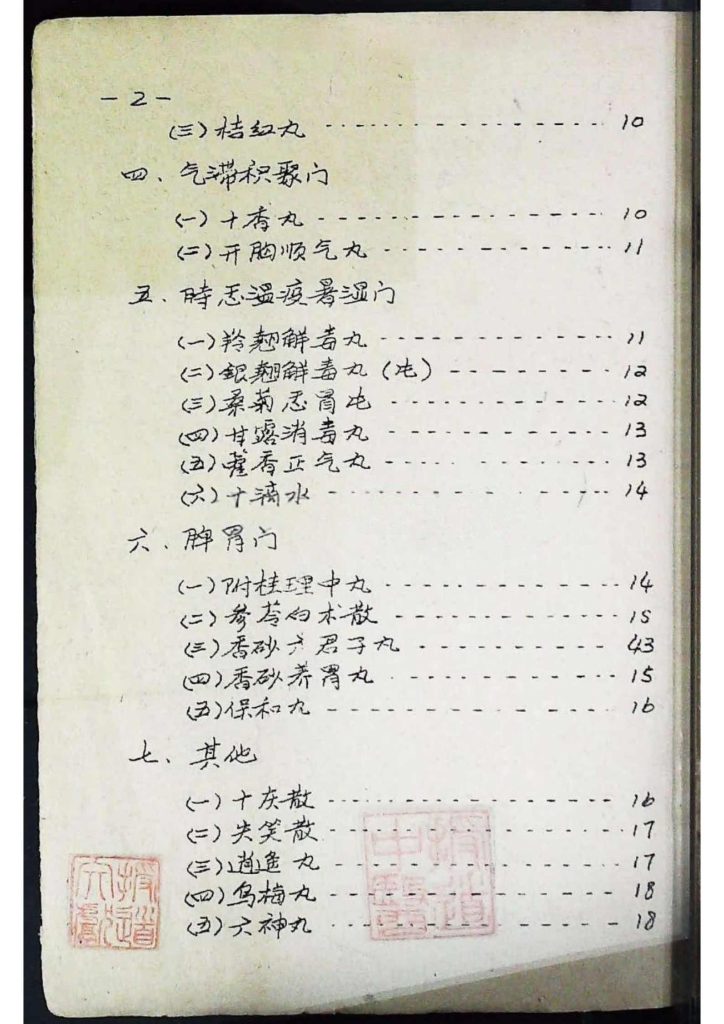 -2-
(三)桔红丸 ---------- 10
四、气滞积聚门
(一)十香丸 ---------- 10
(二)开胸顺气丸 ---------- 11
五、時恙温疫暑湿门
(一)羚翘解毒丸 ---------- 11
(二)銀翘解毒丸(片) ---------- 12
(三)桑菊感冒片 ---------- 12
(四)甘露消毒丸 ---------- 13
(五)藿香正气丸 ---------- 13
(六)十滴水 ---------- 14
六、脾胃门
(一)附桂理中丸 ---------- 14
(二)参苓白术散 ---------- 15
(三)香砂六君子丸 ---------- 43
(四)香砂养胃丸 ---------- 15
(五)保和丸 ---------- 16
七、其他
(一)十灰散 ---------- 16
(二)失笑散 ---------- 17
(三)逍遥丸 ---------- 17
(四)乌梅丸 ---------- 18
(五)六神丸 ---------- 18